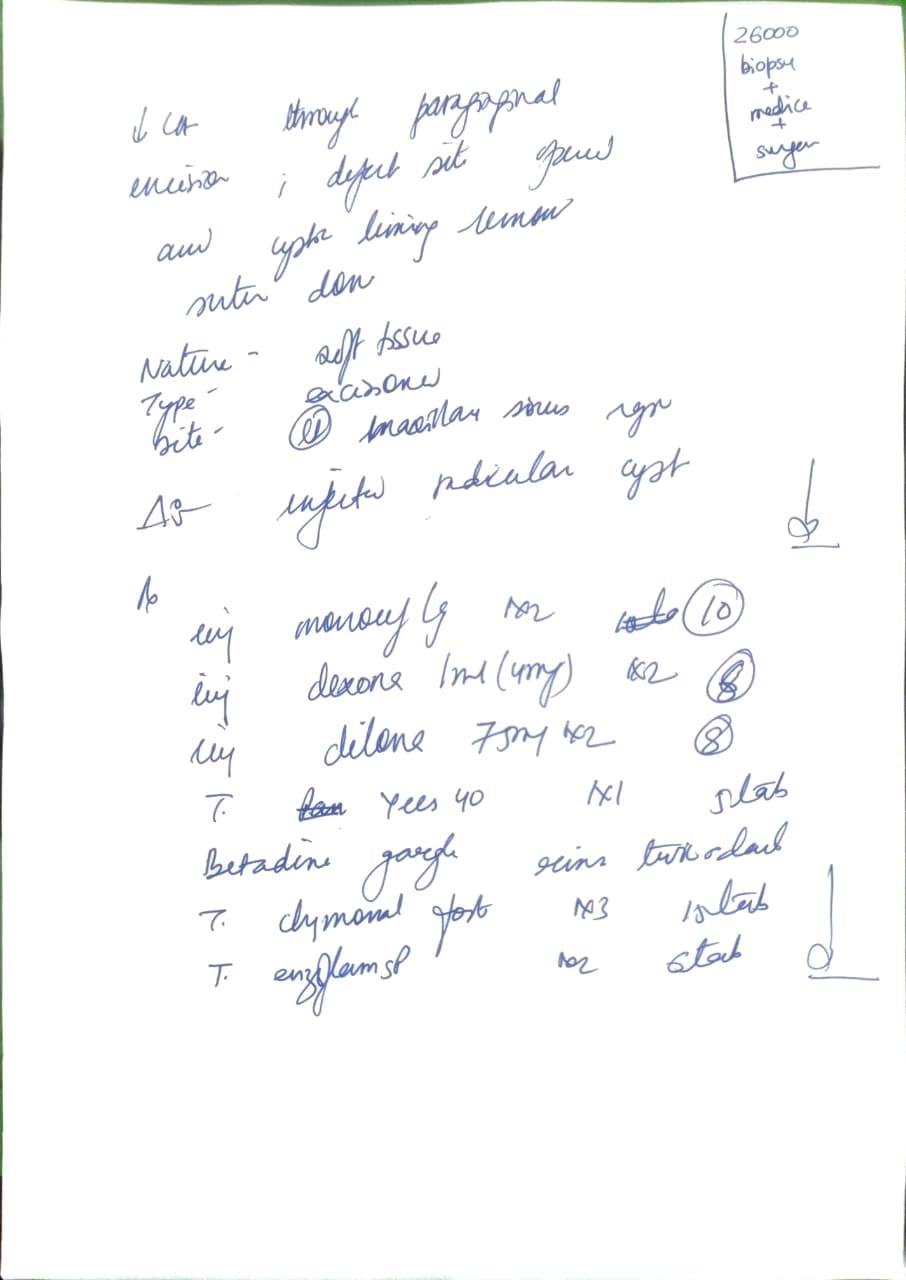 26000
biopsy
+
medice
+
surger
↓ LA through paragaginal
encision ; defect sit opened
and cystic lining remov
suter don
Nature - soft tissue
Type - excisone
Site - maxillary sinus regn
Δs infected radicular cyst
Rx
inj monocef 1g 1x2 10
inj dexona 1ml (4mg) 1x2 8
inj dilona 75mg 1x2 8
T. Yees 40 1x1 5tab
Betadine gargle rins twice a dail
T. chymoral fort 1x3 15tab
T. enzflam SP 1x2 6tab